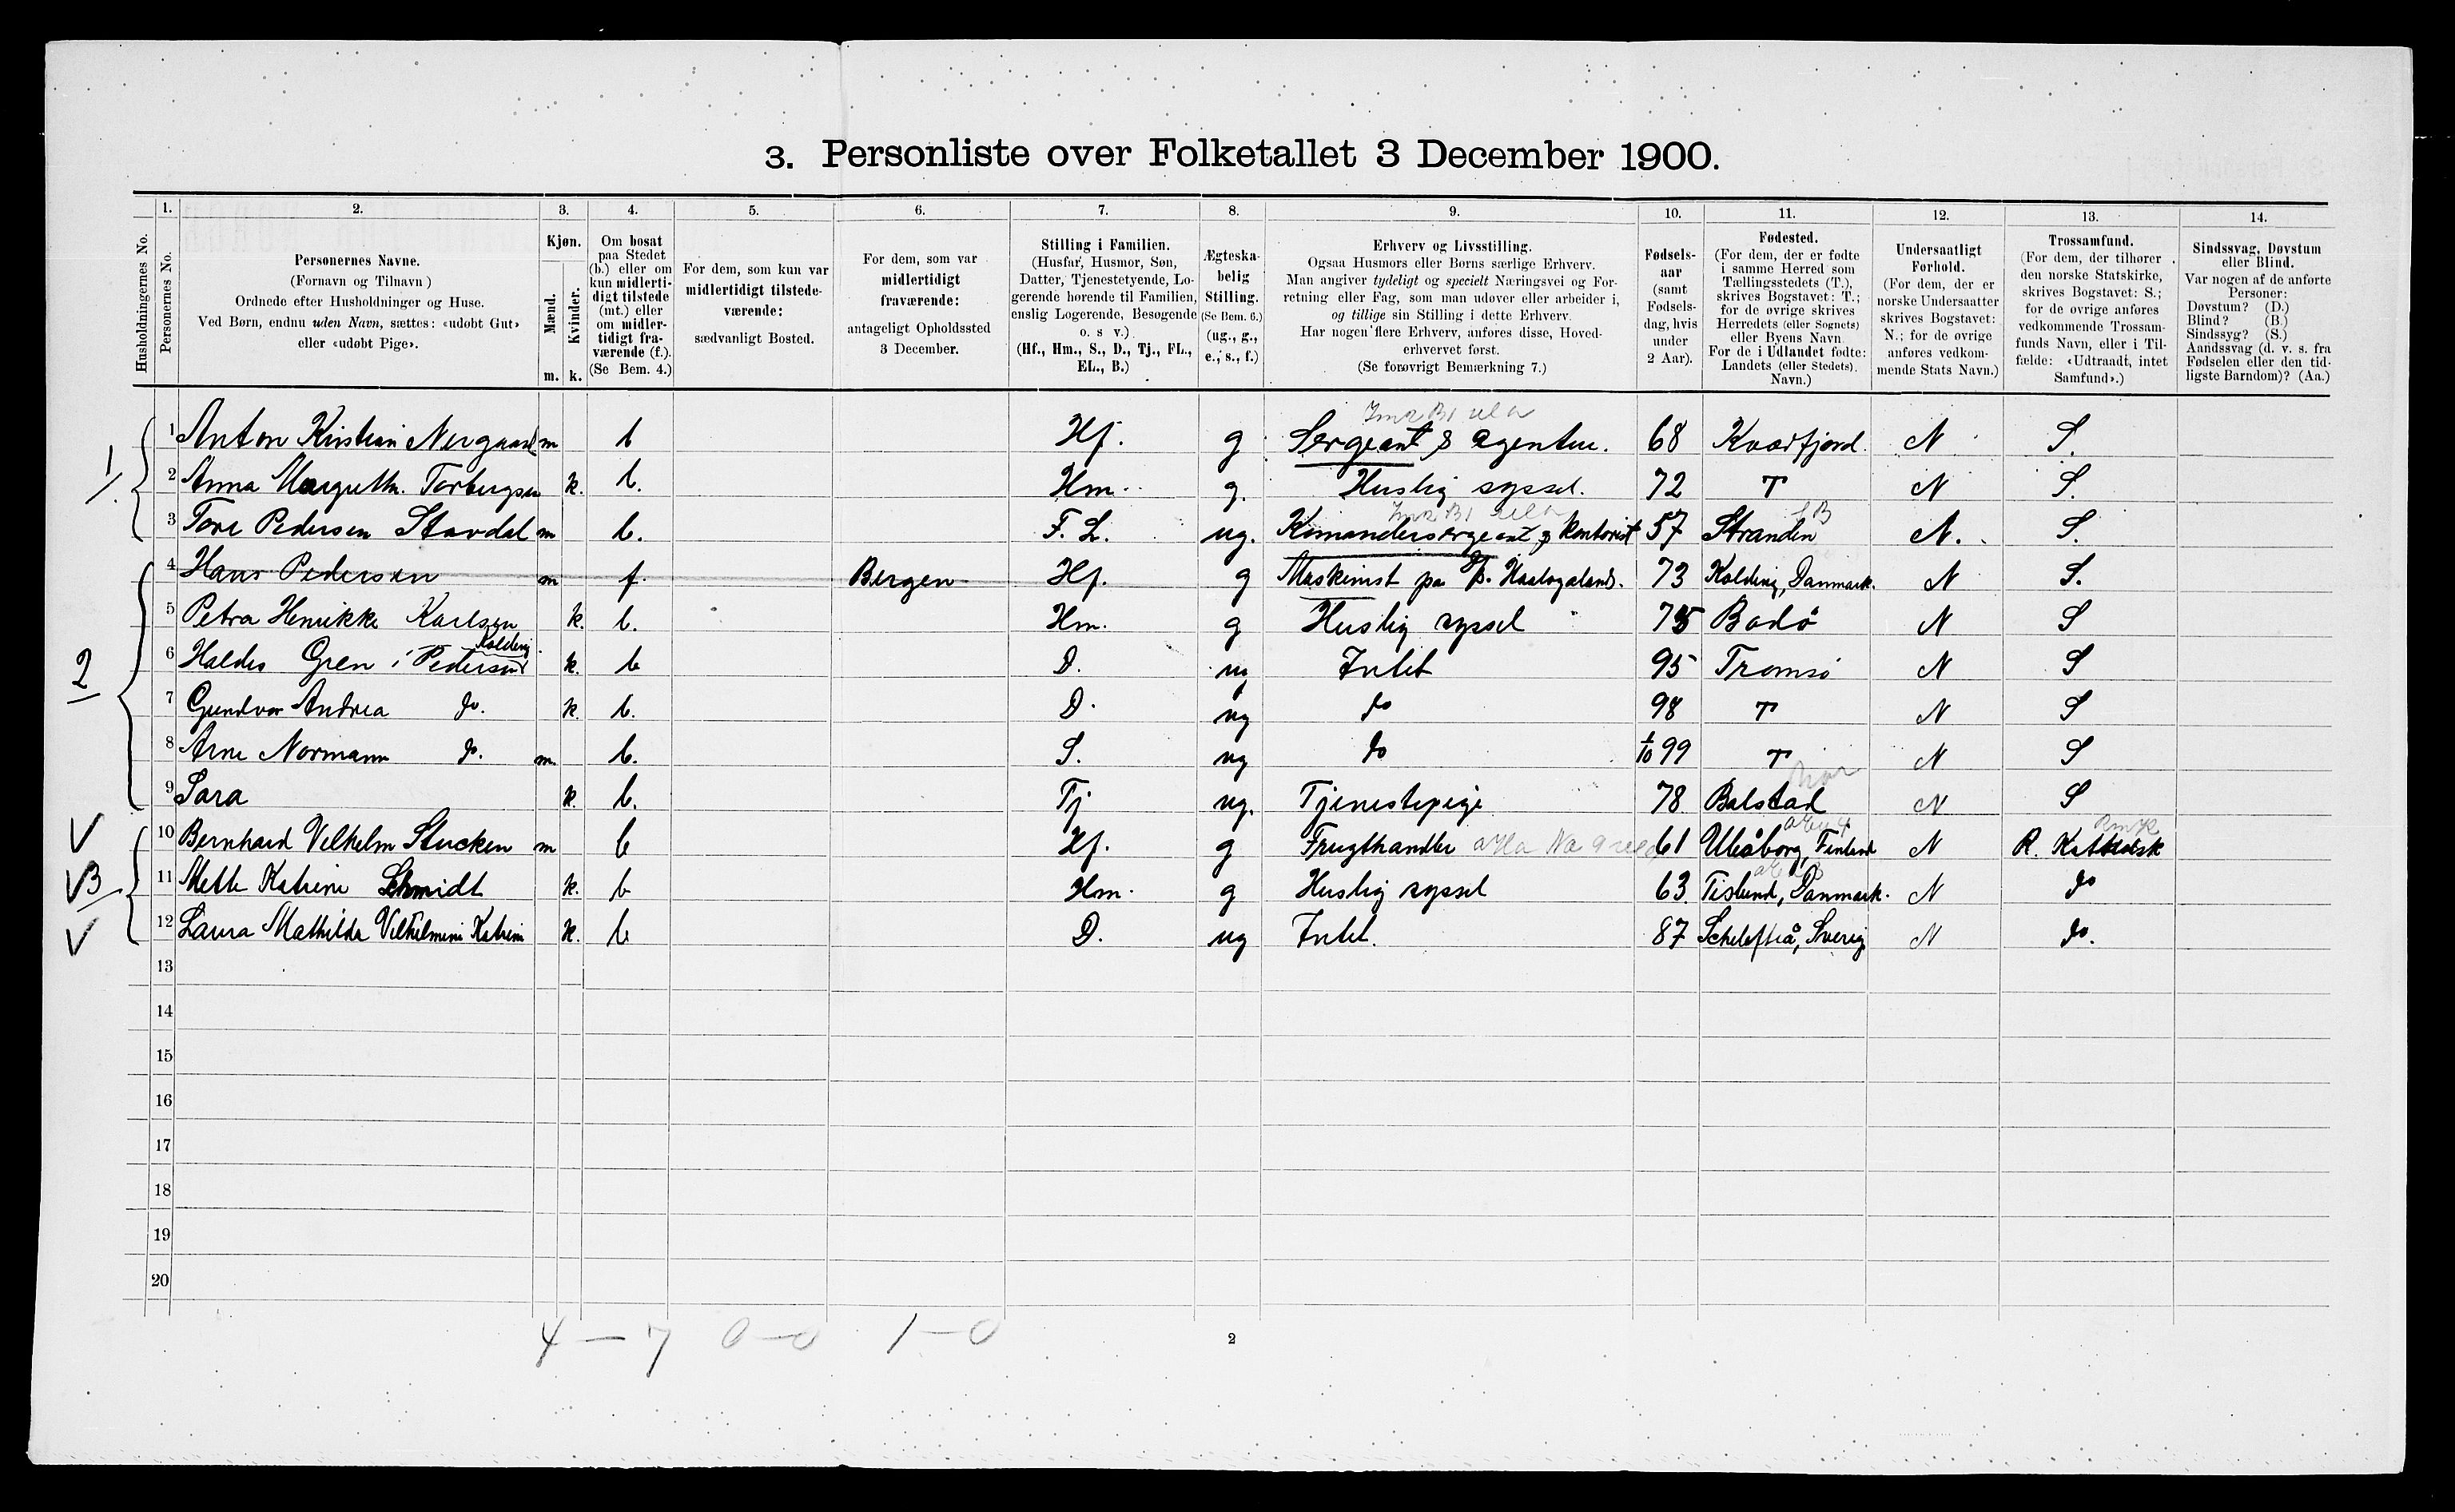 3. Personliste over Folketallet 3 December 1900.
Husholdningernes No.
1. Personernes No.
2. Personernes Navne.
(Fornavn og Tilnavn)
Ordnede efter Husholdninger og Huse.
Ved Børn, endnu uden Navn, sættes: «udøbt Gut»
eller «udøbt Pige».
3. Kjøn.
Mænd. Kvinder.
m. k.
4. Om bosat
paa Stedet
(b.) eller om
kun midlerti-
digt tilstede
(mt.) eller
om midler-
tidigt fra-
værende (f.).
(Se Bem. 4.)
5. For dem, som kun var
midlertidigt tilstede-
værende:
sædvanligt Bosted.
6. For dem, som var
midlertidigt
fraværende:
antageligt Opholdssted
3 December.
7. Stilling i Familien.
(Husfar, Husmor, Søn,
Datter, Tjenestetyende, Lo-
gerende hørende til Familien,
enslig Logerende, Besøgende
o. s v.)
(Hf., Hm., S., D., Tj., FL.,
EL., B.)
8. Ægteska-
belig
Stilling.
(Se Bem. 6.)
(ug., g.,
e., s., f.)
9. Erhverv og Livsstilling.
Ogsaa Husmors eller Børns særlige Erhverv.
Man angiver tydeligt og specielt Næringsvei og For-
retning eller Fag, som man udøver eller arbeider i,
og tillige sin Stilling i dette Erhverv.
Har nogen flere Erhverv, anføres disse, Hoved-
erhvervet først.
(Se forøvrigt Bemærkning 7.)
10. Fødsels-
aar
(samt
Fødsels-
dag, hvis
under
2 Aar).
11. Fødested.
(For dem, der er fødte
i samme Herred som
Tællingsstedets (T.),
skrives Bogstavet: T.;
for de øvrige skrives
Herredets (eller Sognets)
eller Byens Navn.
For de i Udlandet fødte:
Landets (eller Stedets).
Navn.)
12. Undersaatligt
Forhold.
(For dem, der er
norske Undersaatter
skrives Bogstavet:
N.; for de øvrige
anføres vedkom-
mende Stats Navn.)
13. Trossamfund.
(For dem, der tilhører
den norske Statskirke,
skrives Bogstavet: S.;
for de øvrige anføres
vedkommende Trossam-
funds Navn, eller i Til-
fælde: «Udtraadt, intet
Samfund».)
14. Sindssvag, Døvstum
eller Blind.
Var nogen af de anførte
Personer:
Døvstum? (D.)
Blind? (B.)
Sindssyg? (S.)
Aandssvag (d. v. s. fra
Fødselen eller den tid-
ligste Barndom)? (Aa.)
1. 1 Anton Kristian Nergaard m b Hf. g Sergeant & agentur. 68 Kvæfjord. N S.
2 Anna Margrethe Torbergsen k. b. Hm. g. Huslig syssel. 72 T N S.
3 Tore Pedersen Stavdal m b. F. L. ug. Komandersergeant & Kontorist 57 Stranden N. S.
2 4 Hans Pedersen m f. Bergen Hf. g Maskinist pa D/S. Haalogaland. 73 Kolding, Danmark. N S.
5 Petra Henrikke Karlsen k. b. Hm. g Huslig syssel 75 Bodö N S
Kolding
6 Haldis Gren Pedersen k. b D. ug Intet 95 Tromsö N S
7 Gundvor Andrea do. k. b. D. ug do 98 T N S
8 Arne Normann do. m. b. S. ug do 1/10 99 T N S
9 Sara k. b. Tj ug. Tjenestepige 78 Balstad N S
10 Bernhard Vilhelm Stucken m b Hf. g Frugthandler 61 Uleåborg, Finland N R. Katholsk
3. 11 Mette Katrine Schmidt k. b Hm. g Huslig syssel 63. Tislund, Danmark. N do
12 Laura Mathilde Vilhelmine Katrine k. b D. ug Intet. 87 Schelefteå, Sverig N do.
13
14
15
16
17
18
19
20
4 — 7 0—0 1—0
2